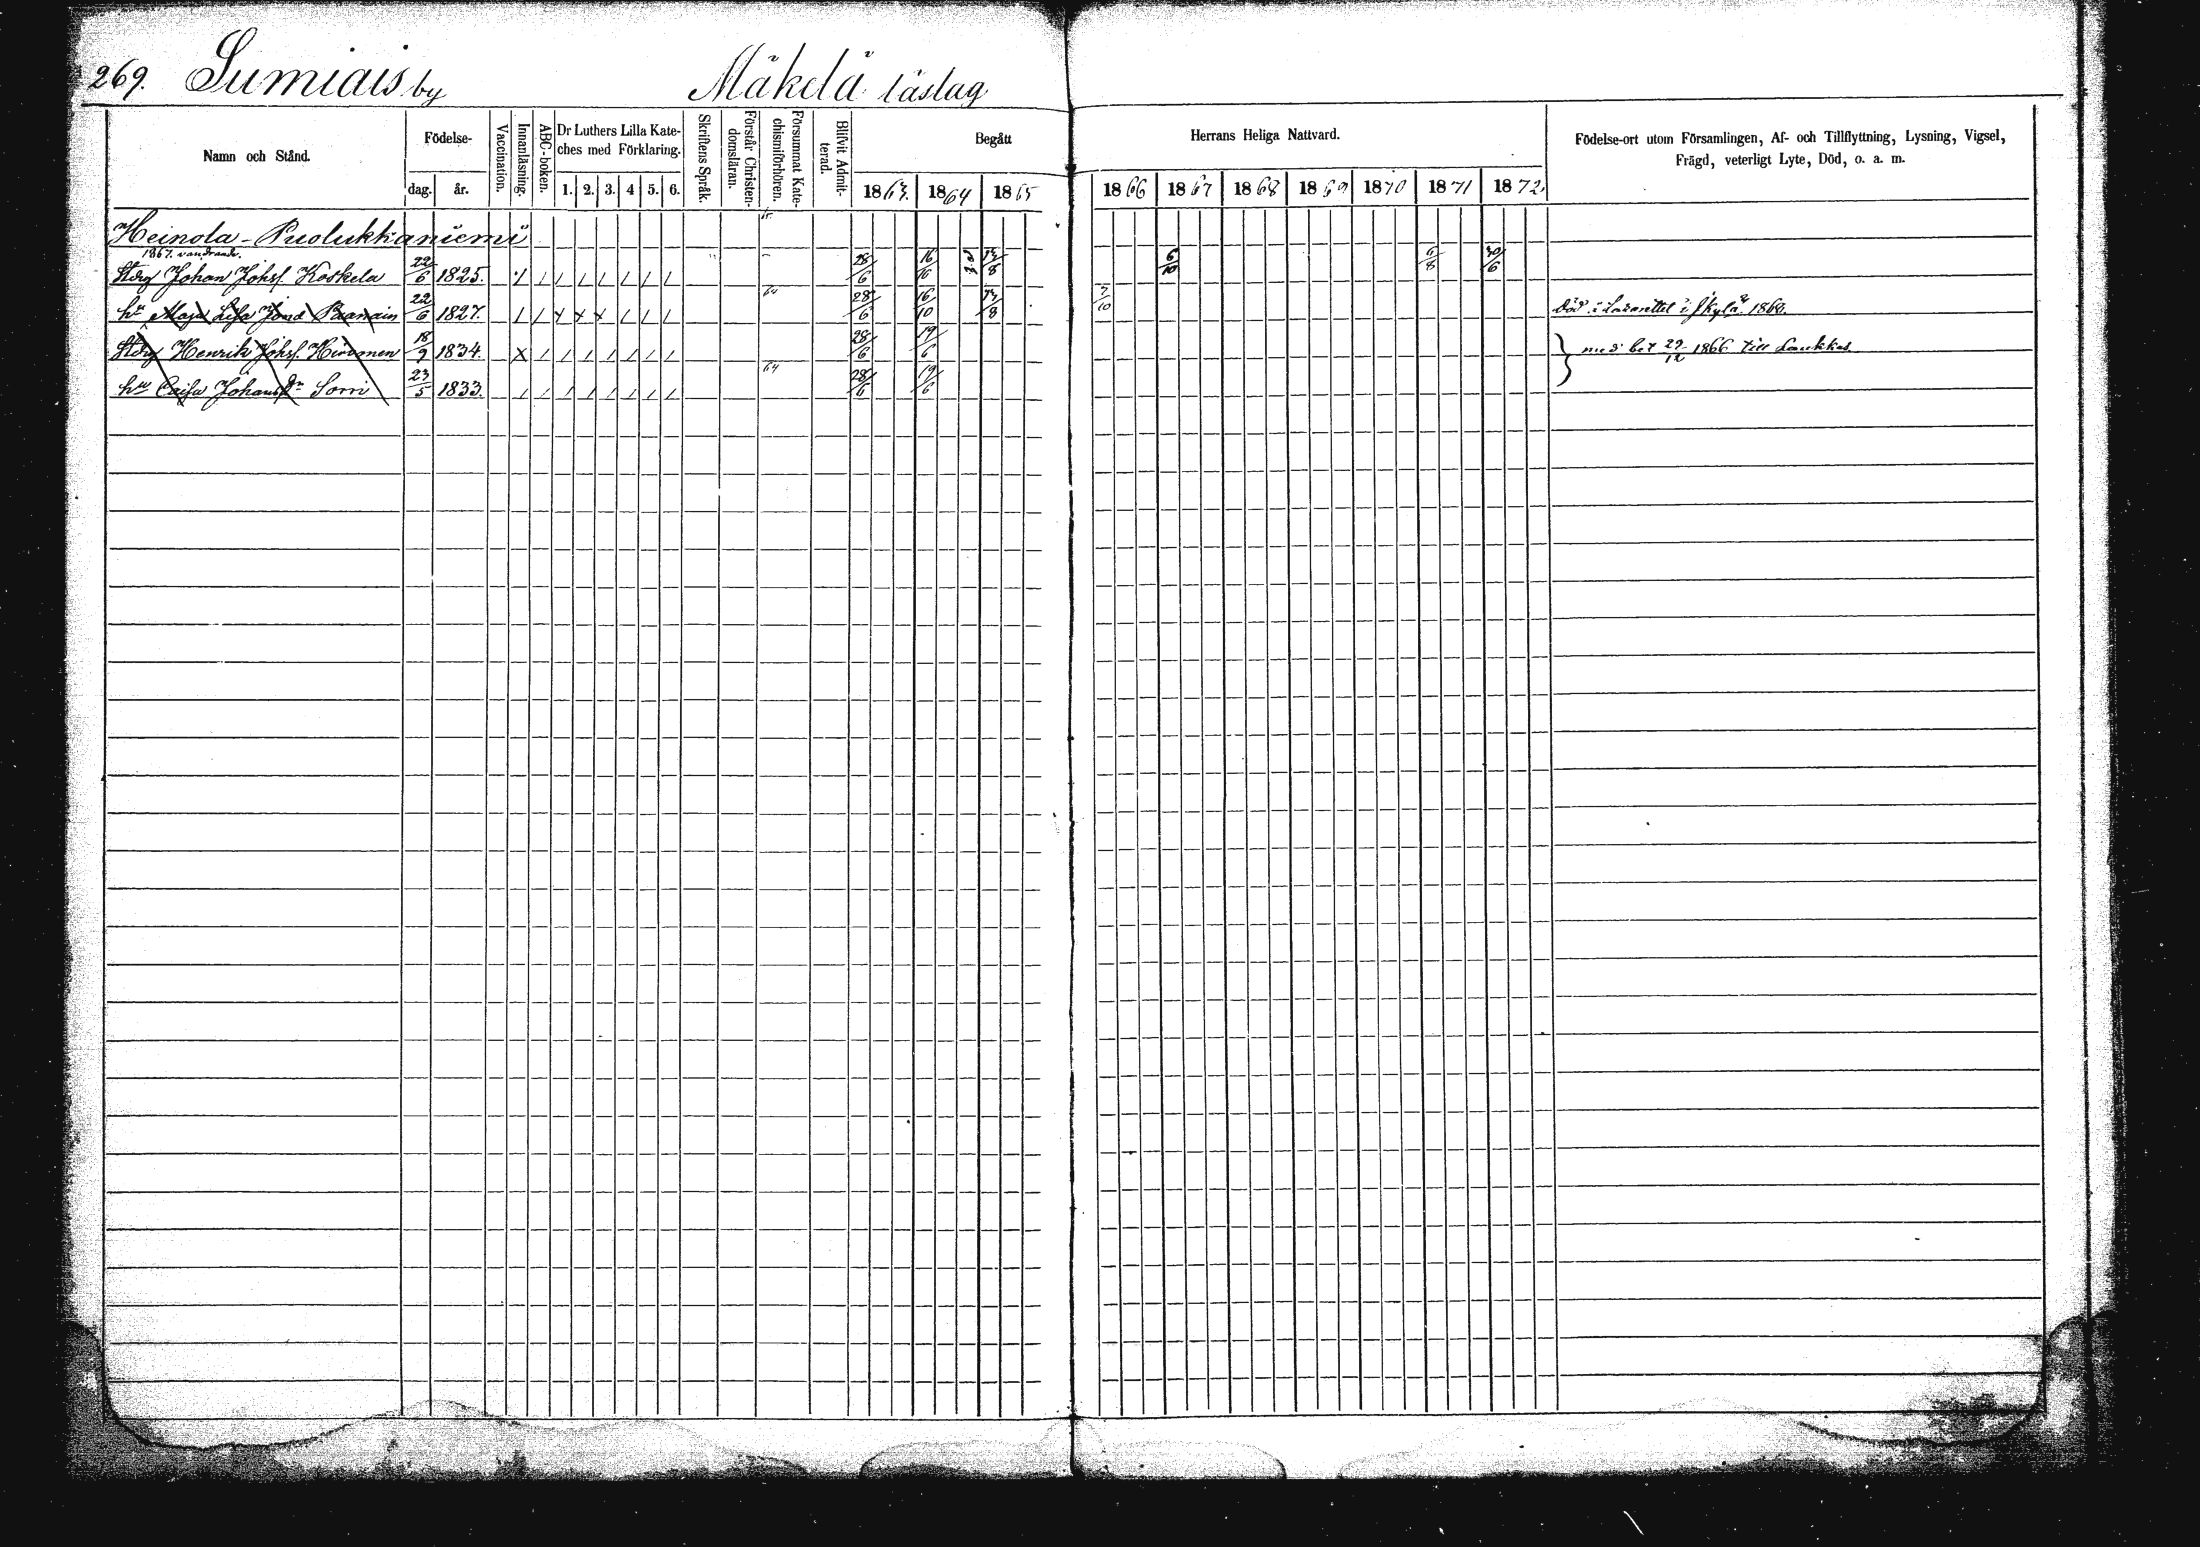 269. Sumiais by Mäkelä läslag
Namn och Stånd.
Födelse-
dag. år.
Vaccination.
Innanläsning.
ABC-boken.
Dr Luthers Lilla Kate-
ches med Förklaring.
1. 2. 3. 4 5. 6.
Skriftens Språk.
Förstår Christen-
domsläran.
Försummat Kate-
chismiförhören.
Blifvit Admit-
terad.
Begått
Herrans Heliga Nattvard.
1863. 1864 1865
1866 1867 1868 1869 1870 1871 1872.
Födelse-ort utom Församlingen, Af- och Tillflyttning, Lysning, Vigsel,
Frägd, veterligt Lyte, Död, o. a. m.
Heinola-Puolukkaniemi
1867. vandrande.
Johan Johsf. Koskela 22/6 1825. 28/6 16/10 13/8 6/10 6/8 30/6
hu Maja Lisa 22/6 1827. 64 28/6 16/10 13/8 7/10 Död i Lasarettet i Jkylä 1868.
Henrik Johsf. Hirvonen 18/9 1834. 28/6 19/6 med bet 29/12 1866 till Laukkas
hu Caisa Johansdr Sorri 23/5 1833. 64 28/6 19/6